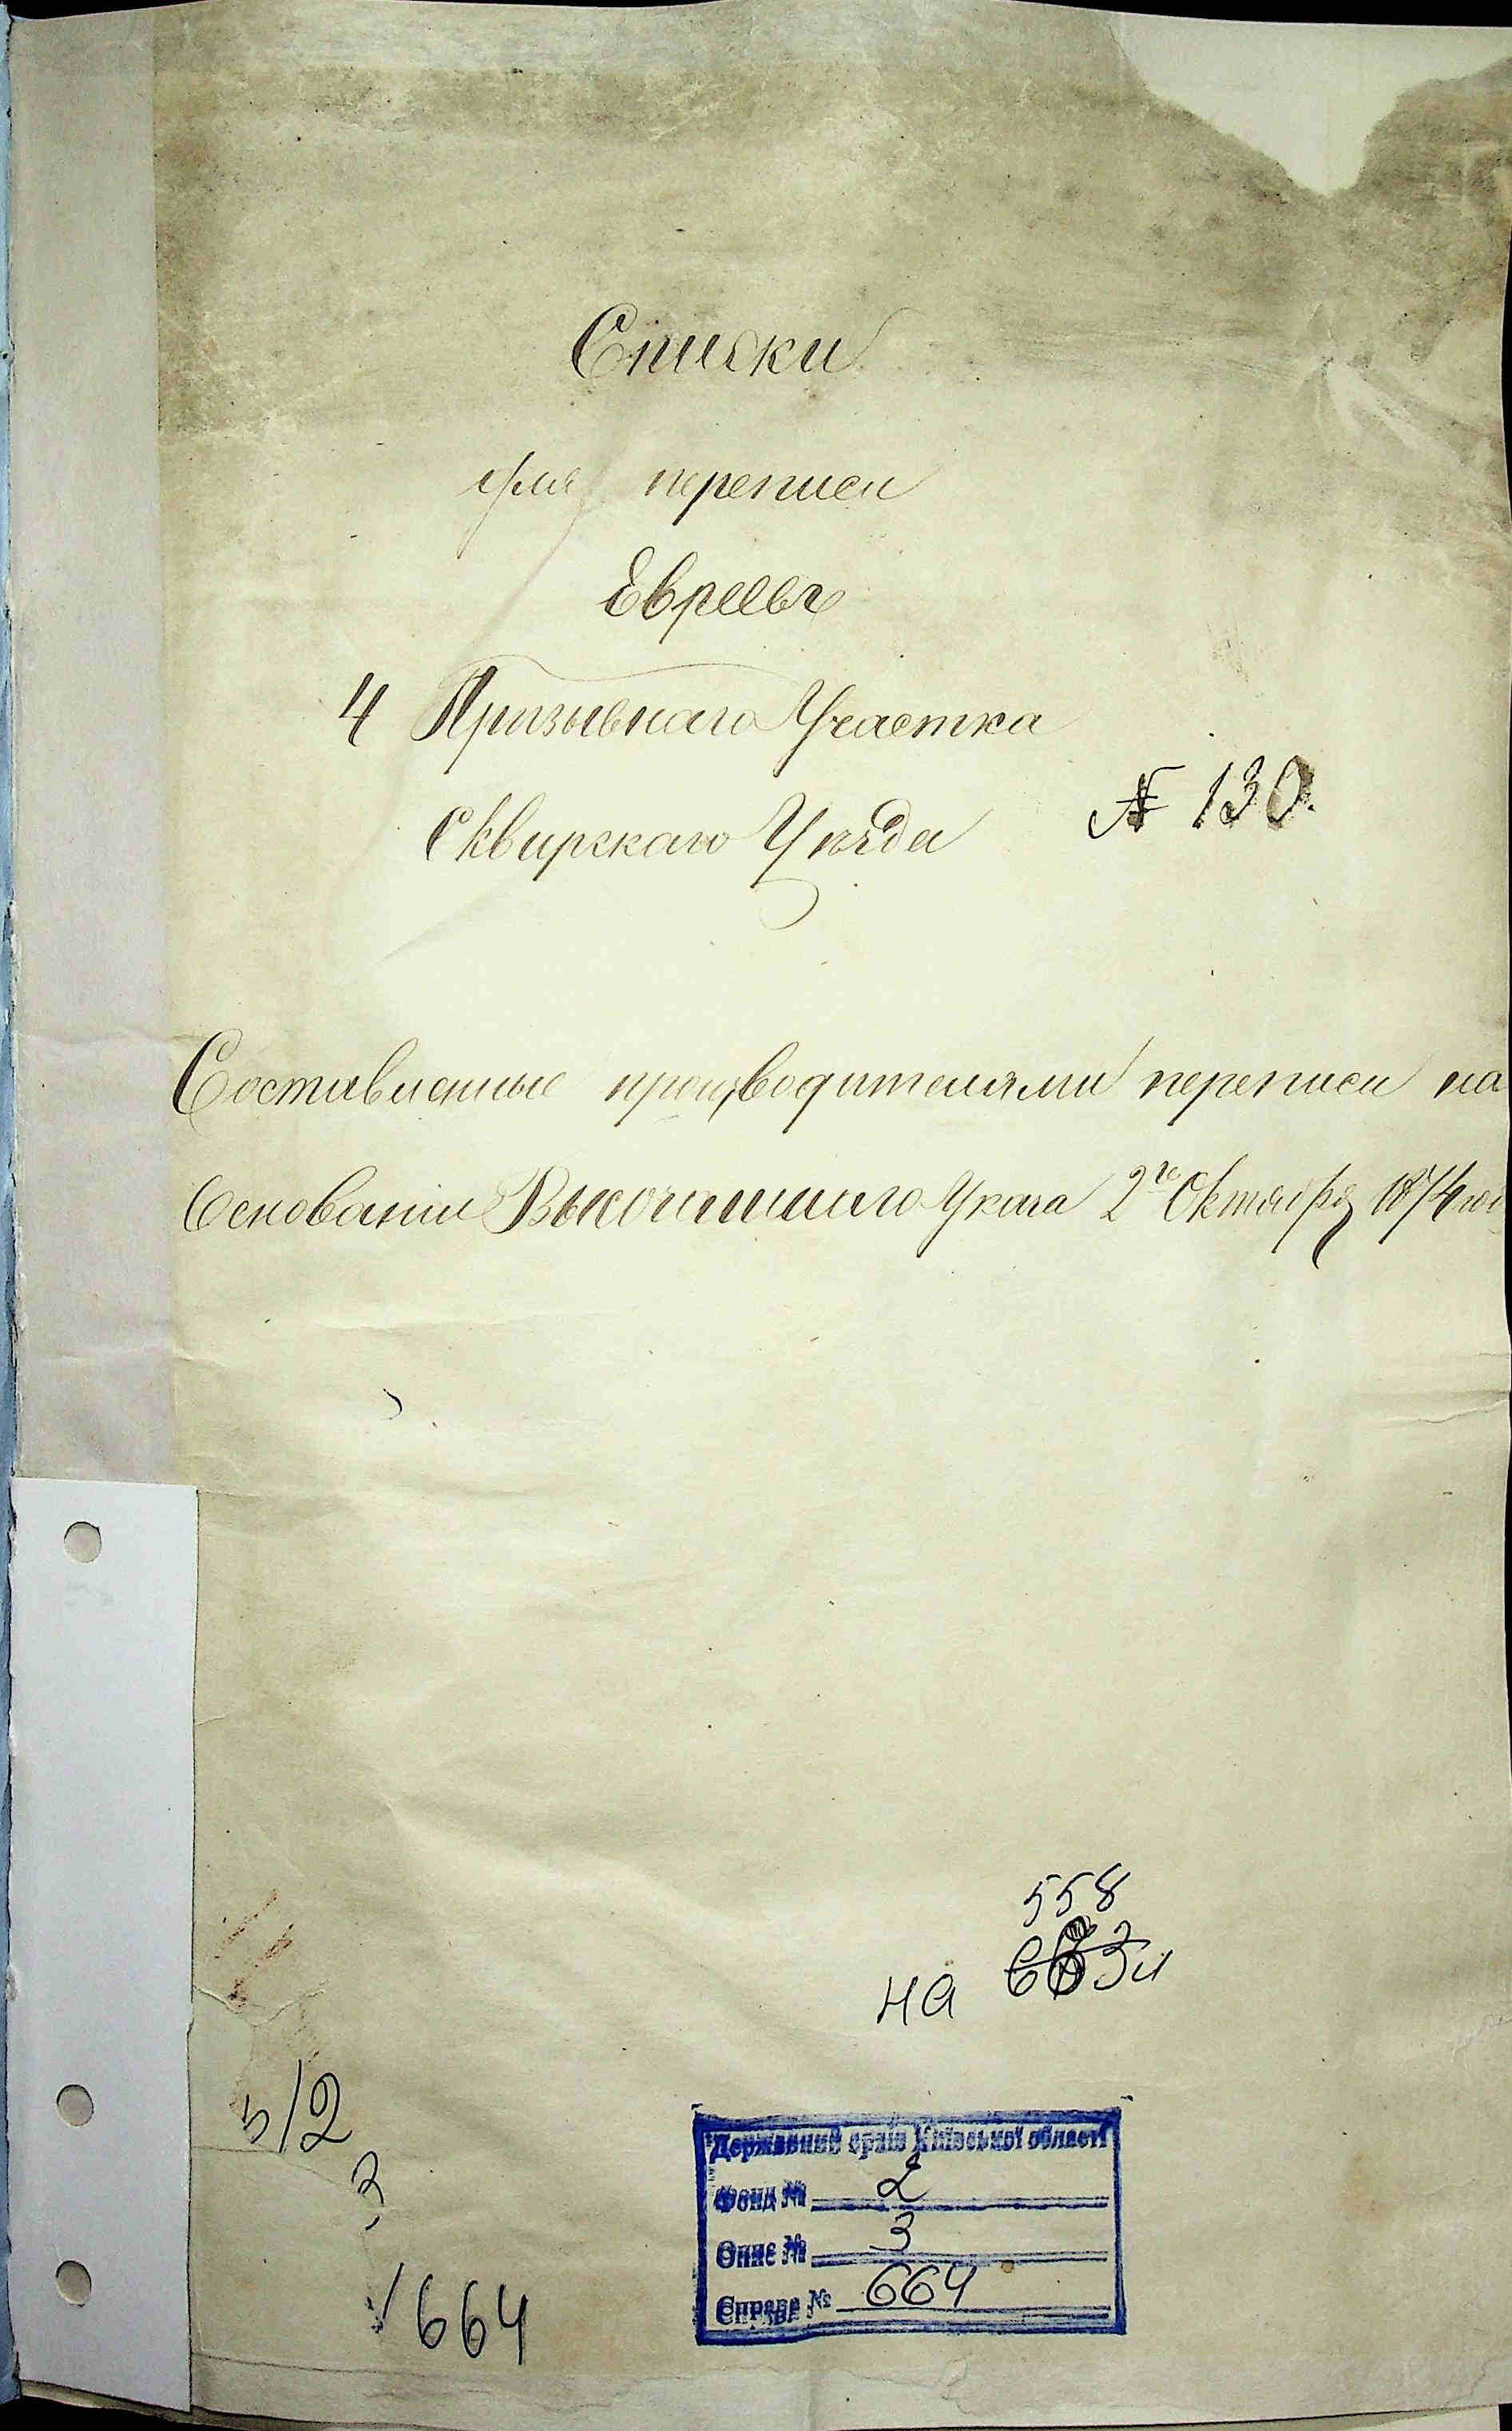 Списки
для переписи
Евреевъ
4 Призывнаго Участка
Сквирскаго Уѣзда
№ 130.
Составленные производителями переписи на
Основаніи Высочайшаго Указа 2го Октября 1874 го
558
на л
5/2
3
1664
Державний архів Київської області
Фонд № 2
Опис № 3
Справа № 664